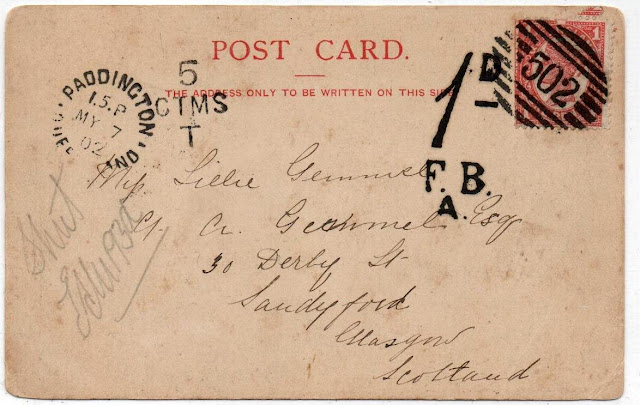 POST CARD.
THE ADDRESS ONLY TO BE WRITTEN ON THIS SIDE
PADDINGTON
1.5.P
MY 7
02
5
CTMS
T
1D
F.B.
A.
502
1
Miss Lillie Gemmel
A. Gemmel Esq
30 Derby St
Sandyford
Glasgow
Scotland